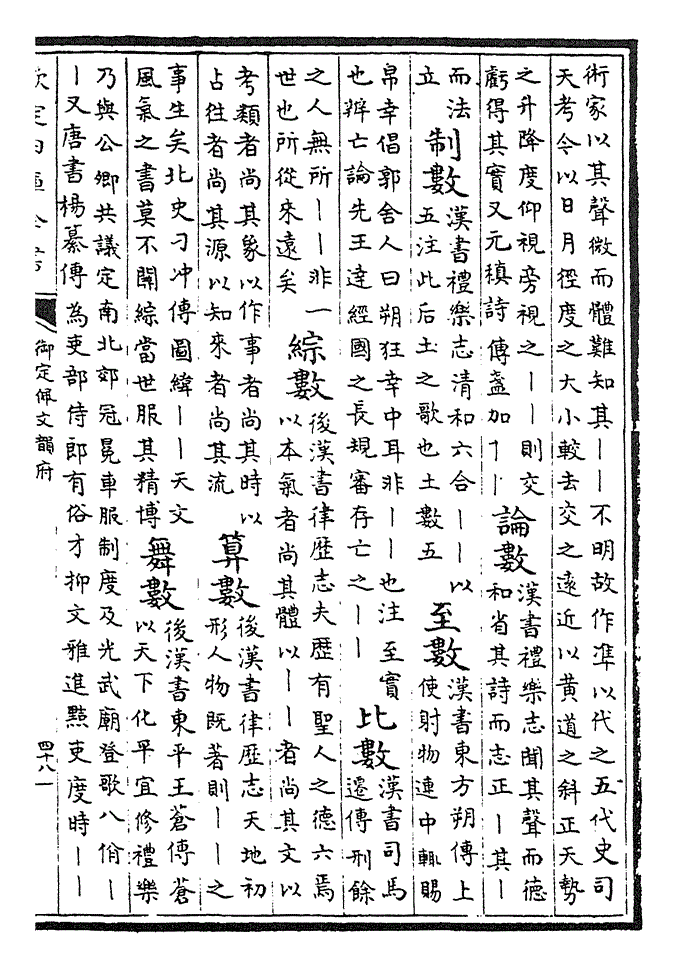 術家以其聲微而體難知其――不明故作準以代之五代史司
天考今以日月徑度之大小較去交之遠近以黃道之斜正天勢
之升降度仰視旁視之――則交
虧得其實又元稹詩傳盞加――
論數
漢書禮樂志聞其聲而德
和省其詩而志正―其―
而法
立
制數
漢書禮樂志清和六合――以
五注此后土之歌也土數五
至數
漢書東方朔傳上
使射物連中輒賜
帛幸倡郭舍人曰朔狂幸中耳非――也注至實
也辨亡論先王達經國之長規審存亡之――
比數
漢書司馬
遷傳刑餘
之人無所――非一
世也所從來遠矣
綜數
後漢書律歷志夫歷有聖人之德六焉
以本氣者尚其體以――者尚其文以
考類者尚其象以作事者尚其時以
占往者尚其源以知來者尚其流
算數
後漢書律歷志天地初
形人物既著則――之
事生矣北史刁冲傳圖緯――天文
風氣之書莫不關綜當世服其精博
舞數
後漢書東平王蒼傳蒼
以天下化平宜修禮樂
乃與公卿共議定南北郊冠冕車服制度及光武廟登歌八佾―
―又唐書楊綦傳為吏部侍郎有俗才抑文雅進黠吏度時――
欽定四庫全書
御定佩文韻府
四十八一